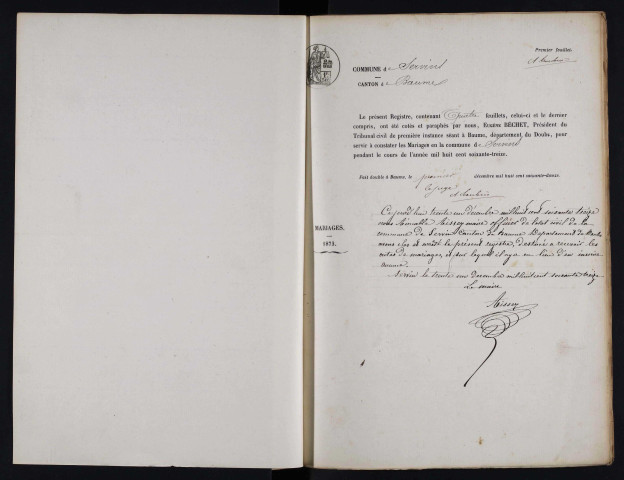 Premier feuillet.
COMMUNE de Servin
CANTON de Baume
Le présent Registre, contenant quatre feuillets, celui-ci et le dernier
compris, ont été cotés et paraphés par nous, BÉCHET, Président du
Tribunal civil de première instance séant à Baume, département du Doubs, pour
servir à constater les Mariages en la commune de Servin
pendant le cours de l'année mil huit cent soixante-treize.
Fait double à Baume, le premier décembre mil huit cent soixante-douze.
Le juge
MARIAGES.
1873.
Cejourd'hui trente un décembre mil huit cent soixante treize
nous maire officier de l'état civil de la
commune de Servin Canton de Baume Département du Doubs
avons clos et arrêté le présent registre, destiné à recevoir les
actes de mariages, et sur lequel il y a eu lieu d'en inscrire
aucune.
Servin le trente un décembre mil huit cent soixante treize
Le maire